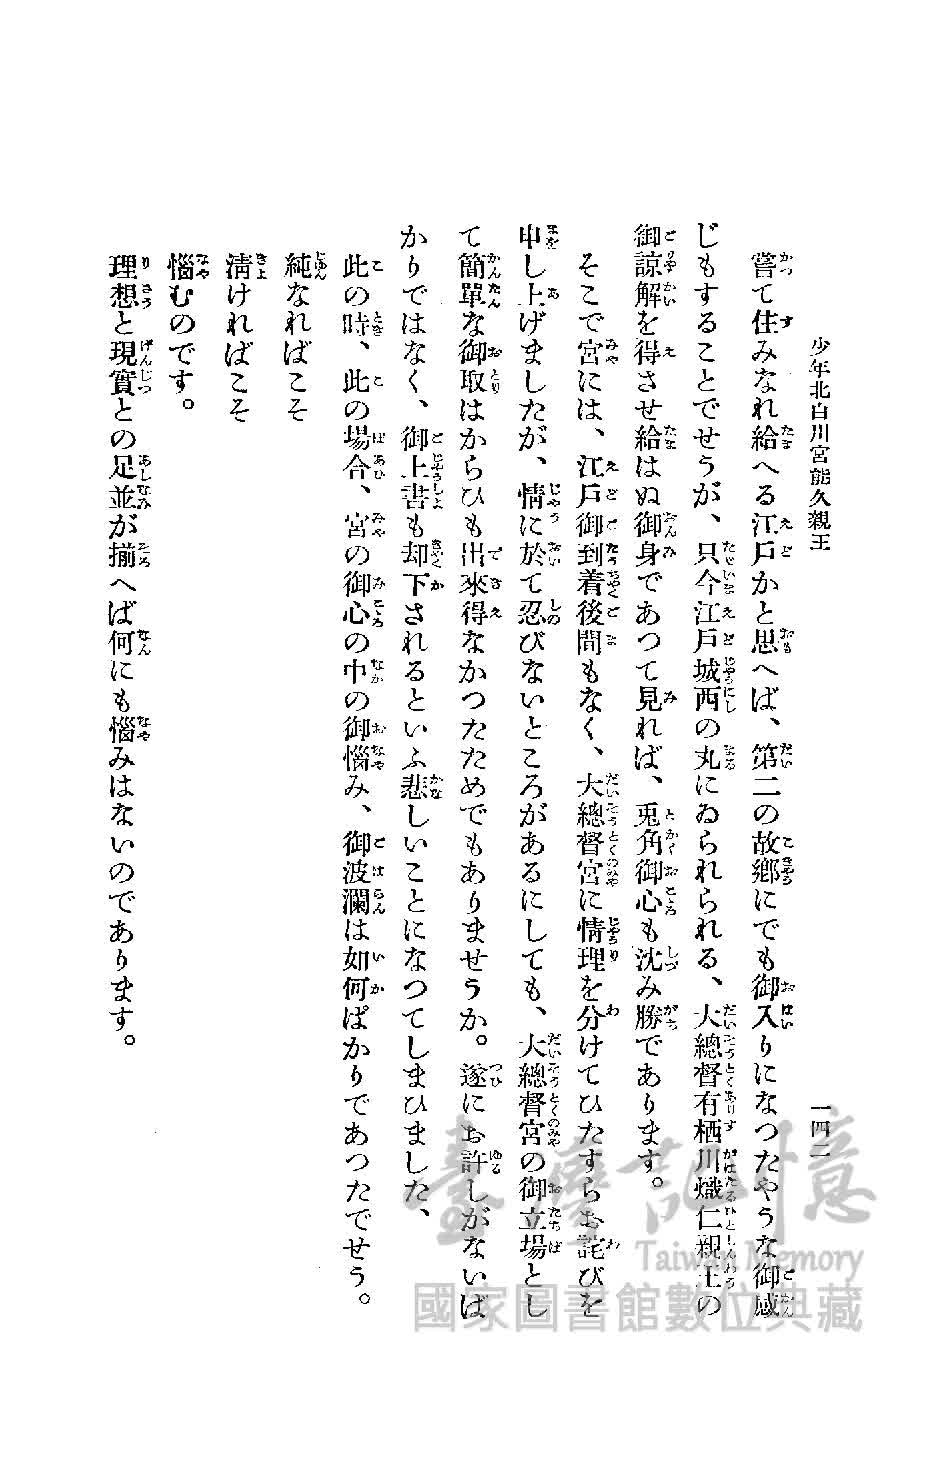 少年北白川宮能久親王
一四二
嘗て住みなれ給へる江戸かと思へば、第二の故鄕にでも御入りになつたやうな御感
じもすることでせうが、只今江戸城西の丸にゐられられる、大總督有栖川熾仁親王の
御諒解を得させ給はぬ御身であつて見れば、兎角御心も沈み勝であります。
そこで宮には、江戸御到着後間もなく、大總督宮に情理を分けてひたすらお詫びを
申し上げましたが、情に於て忍びないところがあるにしても、大總督宮の御立場とし
て簡單な御取はからひも出來得なかつたためでもありませうか。遂にお許しがないば
かりではなく、御上書も却下されるといふ悲しいことになつてしまひました、
此の時、此の場合、宮の御心の中の御惱み、御波瀾は如何ばかりであつたでせう。
純なればこそ
淸ければこそ
惱むのです。
理想と現實との足並が揃へば何にも惱みはないのであります。
臺灣記憶
Taiwan Memory
國家圖書館數位典藏